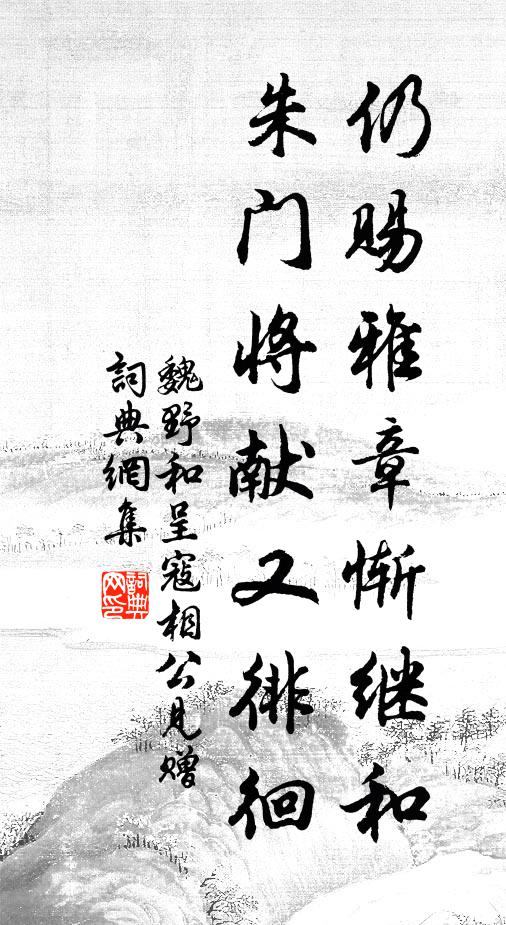 仍赐雅章惭继和
朱门将献又徘徊
魏野和呈寇相公见赠
詞典網集
詞典网印